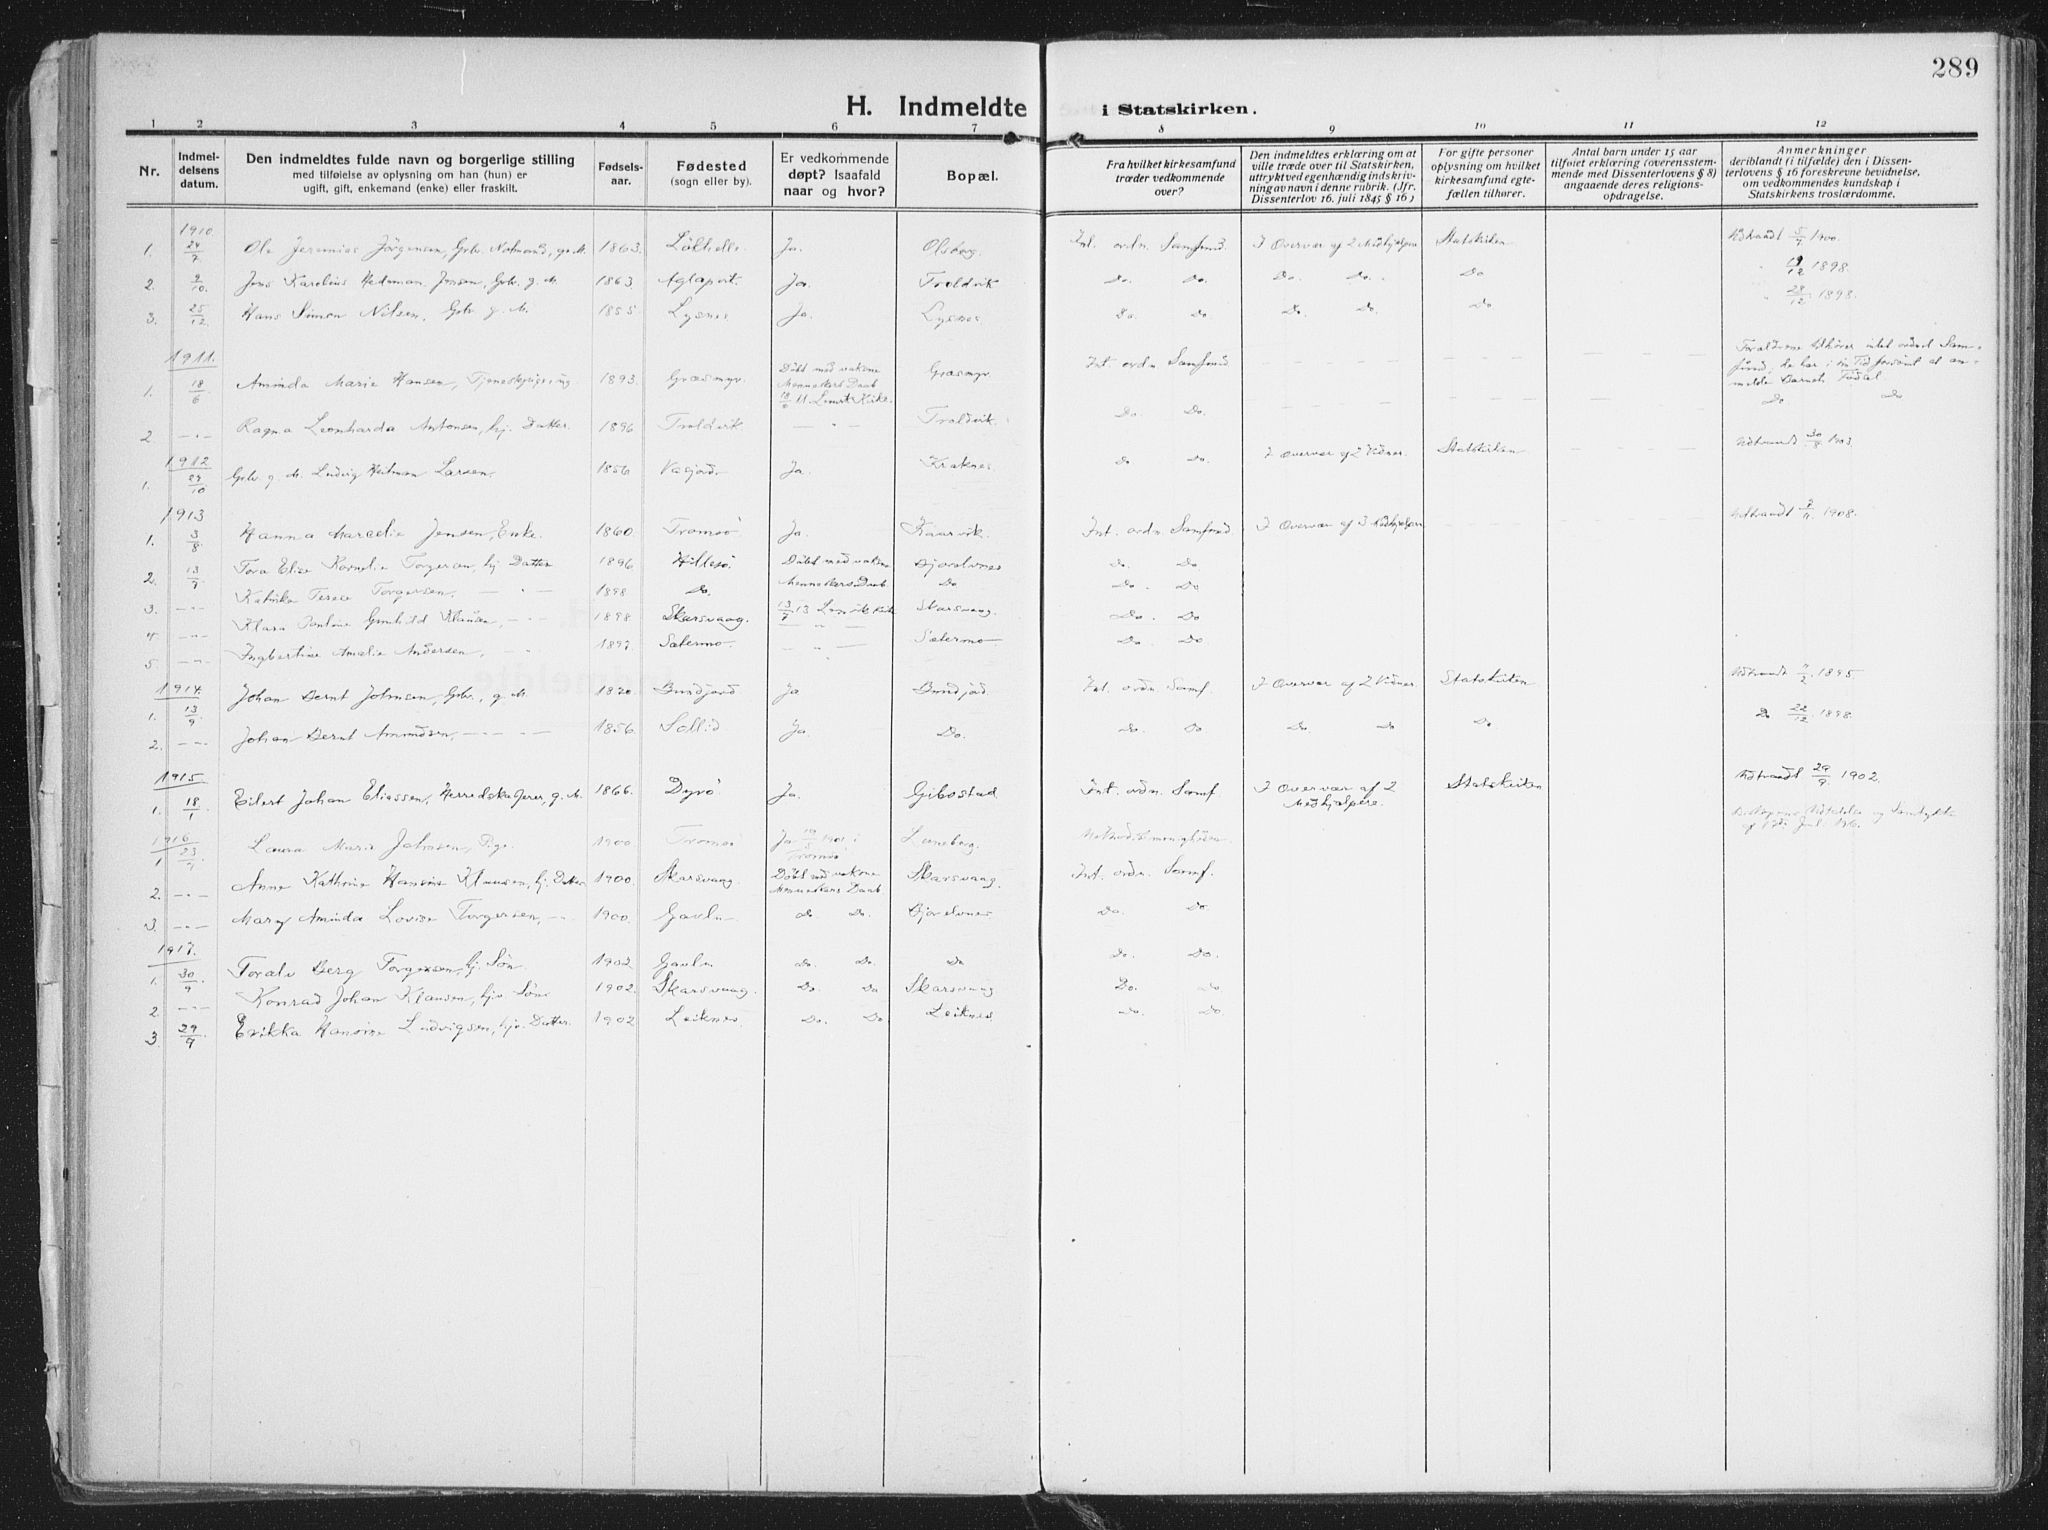 289
H. Indmeldte i Statskirken.
1 2 3 4 5 6 7 8 9 10 11 12
Nr.
Indmel-
delsens
datum.
Den indmeldtes fulde navn og borgerlige stilling
med tilføielse av oplysning om han (hun) er
ugift, gift, enkemand (enke) eller fraskilt.
Fødsels-
aar.
Fødested
(sogn eller by).
Er vedkommende
døpt? Isaafald
naar og hvor?
Bopæl.
Fra hvilket kirkesamfund
træder vedkommende
over?
Den indmeldtes erklæring om at
ville træde over til Statskirken,
uttrykt ved egenhændig indskriv-
ning av navn i denne rubrik. (Jfr.
Dissenterlov 16. juli 1845 § 16.)
For gifte personer
oplysning om hvilket
kirkesamfund egte-
fællen tilhører.
Antal barn under 15 aar
tilføiet erklæring (overensstem-
mende med Dissenterlovens § 8)
angaaende deres religions-
opdragelse.
Anmerkninger
deriblandt (i tilfælde) den i Dissen-
terlovens § 16 foreskrevne bevidnelse,
om vedkommendes kundskap i
Statskirkens troslærdomme.
1910.
1. 24/7 Ole Jeremias Jörgensen, Gbr. g. M. 1863. Ja. Olsborg. Int. ordn. Samfund. I Overvær af 2 Medhjælpere Statskirken Udtraadt 5/7 1900.
2. 2/10. Jens Karelius Heitman Jensen, Gbr. g. M. 1863 Aglapvik. Ja. Troldvik Do. Do. Do. Do. Do 19/12 1898.
3. 25/12. Hans Simon Nilsen, Gbr. g. M. 1855 Lysnes Ja. Lysnes. Do. Do Do. Do. Do 28/12. 1898.
1911.
1. 18/6 Aminda Marie Hansen, Tjenestepige, ug. 1893. Græsmyr. Döbt med voksne Menneskers Daab 18/6 11. Lenvik Kirke. Græsmyr Int. ordn. Samfund. Forældrene tilhører intet ordnet Sam-
fund, de har i sin Tid forsömt at an-
melde Barnets Födsel.
2 — " — Ragna Leonharda Antonsen, hj. Datter. 1896 Troldvik — " — Troldvik. Do. Do. Do. Do
1912
1. 27/10 Gbr. g. M. Ludvig Heitman Larsen. 1856 Ja. Kraknes. Do Do. I Overvær af 2 Vidner. Statskirken Udtraadt 30/8 1903.
1913
1. 3/8 Hanna Marcelie Jensen, Enke. 1860. Tromsö Ja. Kaarvik. Int. ordn. Samfund. I Overvær af 2 Medhjælpere Udtraadt 1908.
2. 13/7 Tora Elise Kornelie Torgersen, hj. Datter 1896. Hillesö. Döbt med voksne Bjorelvnes Do. Do
3. — " — Katrika Terese Torgersen. — " — 1898 Do. Menneskers Daab Do Do. Do
4. — " — Klara Paulone Gunhild Klausen, — " — 1898 Skarsvaag. 13/7 13 Lenvik Kirke Skarsvaag. Do. Do
5. — " — Ingbertine Amalie Andersen, " 1897. Sætermo — " — Sætermo Do Do
1914.
1. 13/9. Johan Bernt Johnsen, Gbr., g. M. 1870. Bundjord. Ja Bundjord Int. ordn. Samf. I Overvær af 2 Vidner. Statskirken Udtraadt 1895
2. — " — Johan Bernt Amundsen, — " — 1856. Sollid Ja. Do. Do. Do Do Do Do Do 22/12. 1898.
1915.
1. 18/1 Eilert Johan Eliassen, Herredskasserer, g. M. 1866. Dyrö Ja. Gibostad. Int. ordn. Samf. I Overvær af 2 Medhjælpere. Statskirken Udtraadt 29/9. 1902.
1916
1. 23/7 Laura Marie Johnsen, Pige. 1900 Tromsö Ja 19/5 1901 i Tromsö Leneberg. Methodistmenigheden
2. — " — Anne Kathrine Hansine Klausen, hj. Datter 1900. Skarsvaag. Döbt ved voksne Menneskers Daab Skarsvaag. Int. ordn. Samf.
3. — " — Mary Aminda Lovise Torgersen, — " — 1900. Gavln Do Do. Bjorelvnes Do. Do.
1917.
1. 30/9 Toralv Berg Torgersen, hj. Sön. 1902. Gavln Do. Do. Do Do. Do.
2 — " — Konrad Johan Klausen, hjv Sön 1902. Skarsvaag. Do. Do Skarsvaag Do. Do
3. 29/9 Erikka Hansine Ludvigsen, hjv. Datter. 1902 Leiknes. Do. Do Leiknes. Do. Do